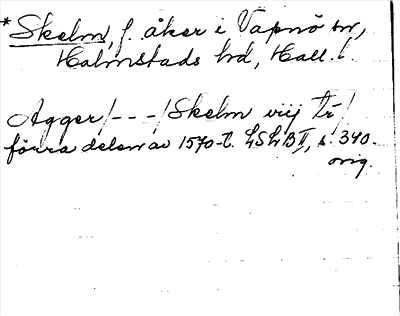 *Skelm, f. åker i Vapnö sn,
Halmstads hd, Hall. l.
Agger/---/Skelm viij tr/
förra delen av 1570-t. LSLB II, s. 340.
orig.